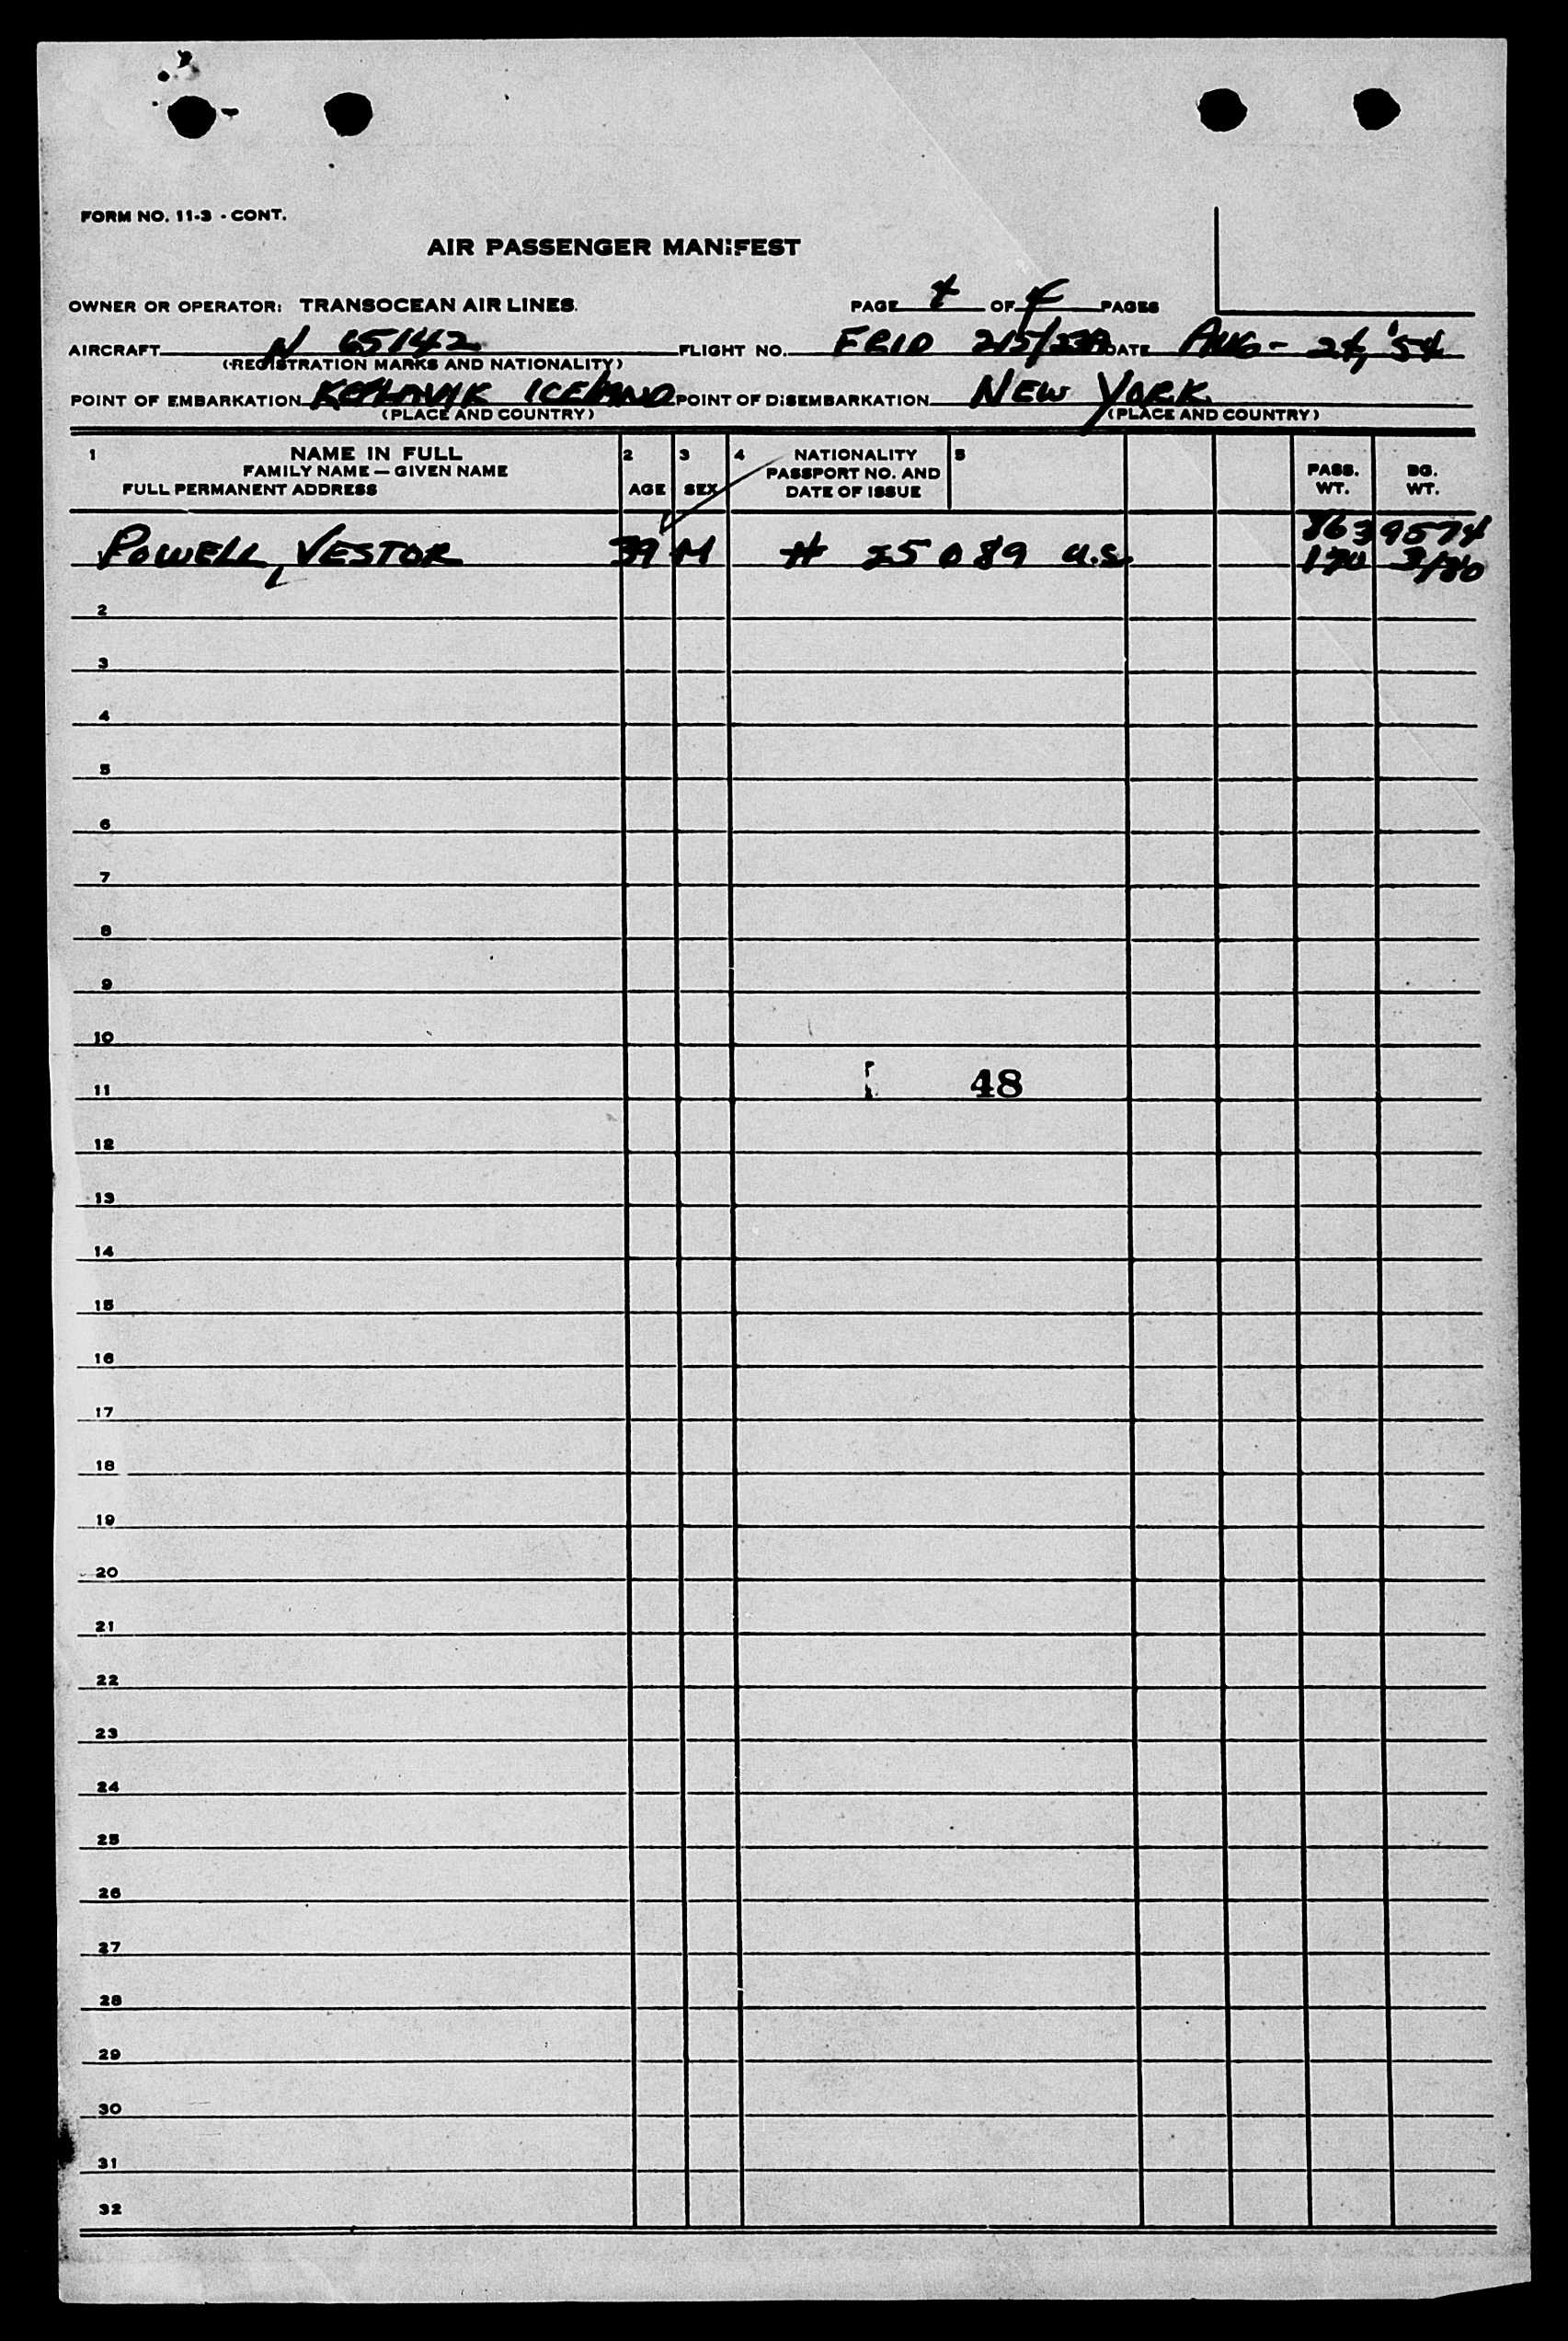 FORM NO. 11-3 - CONT.
AIR PASSENGER MANIFEST
OWNER OR OPERATOR: TRANSOCEAN AIR LINES. PAGE 4 OF 4 PAGES
AIRCRAFT N 65142 FLIGHT NO. 215/23A DATE AUG- 24, '54
(REGISTRATION MARKS AND NATIONALITY)
POINT OF EMBARKATION KEFLAVIK ICELAND POINT OF DISEMBARKATION NEW YORK
(PLACE AND COUNTRY) (PLACE AND COUNTRY)
1 NAME IN FULL 2 3 4 NATIONALITY 5
FAMILY NAME — GIVEN NAME PASSPORT NO. AND PASS. BG.
FULL PERMANENT ADDRESS AGE SEX DATE OF ISSUE WT. WT.
863 9574
POWELL, VESTOR 39 M # 25089 U.S. 170 3/80
2
3
4
5
6
7
8
9
10
11 48
12
13
14
15
16
17
18
19
20
21
22
23
24
25
26
27
28
29
30
31
32